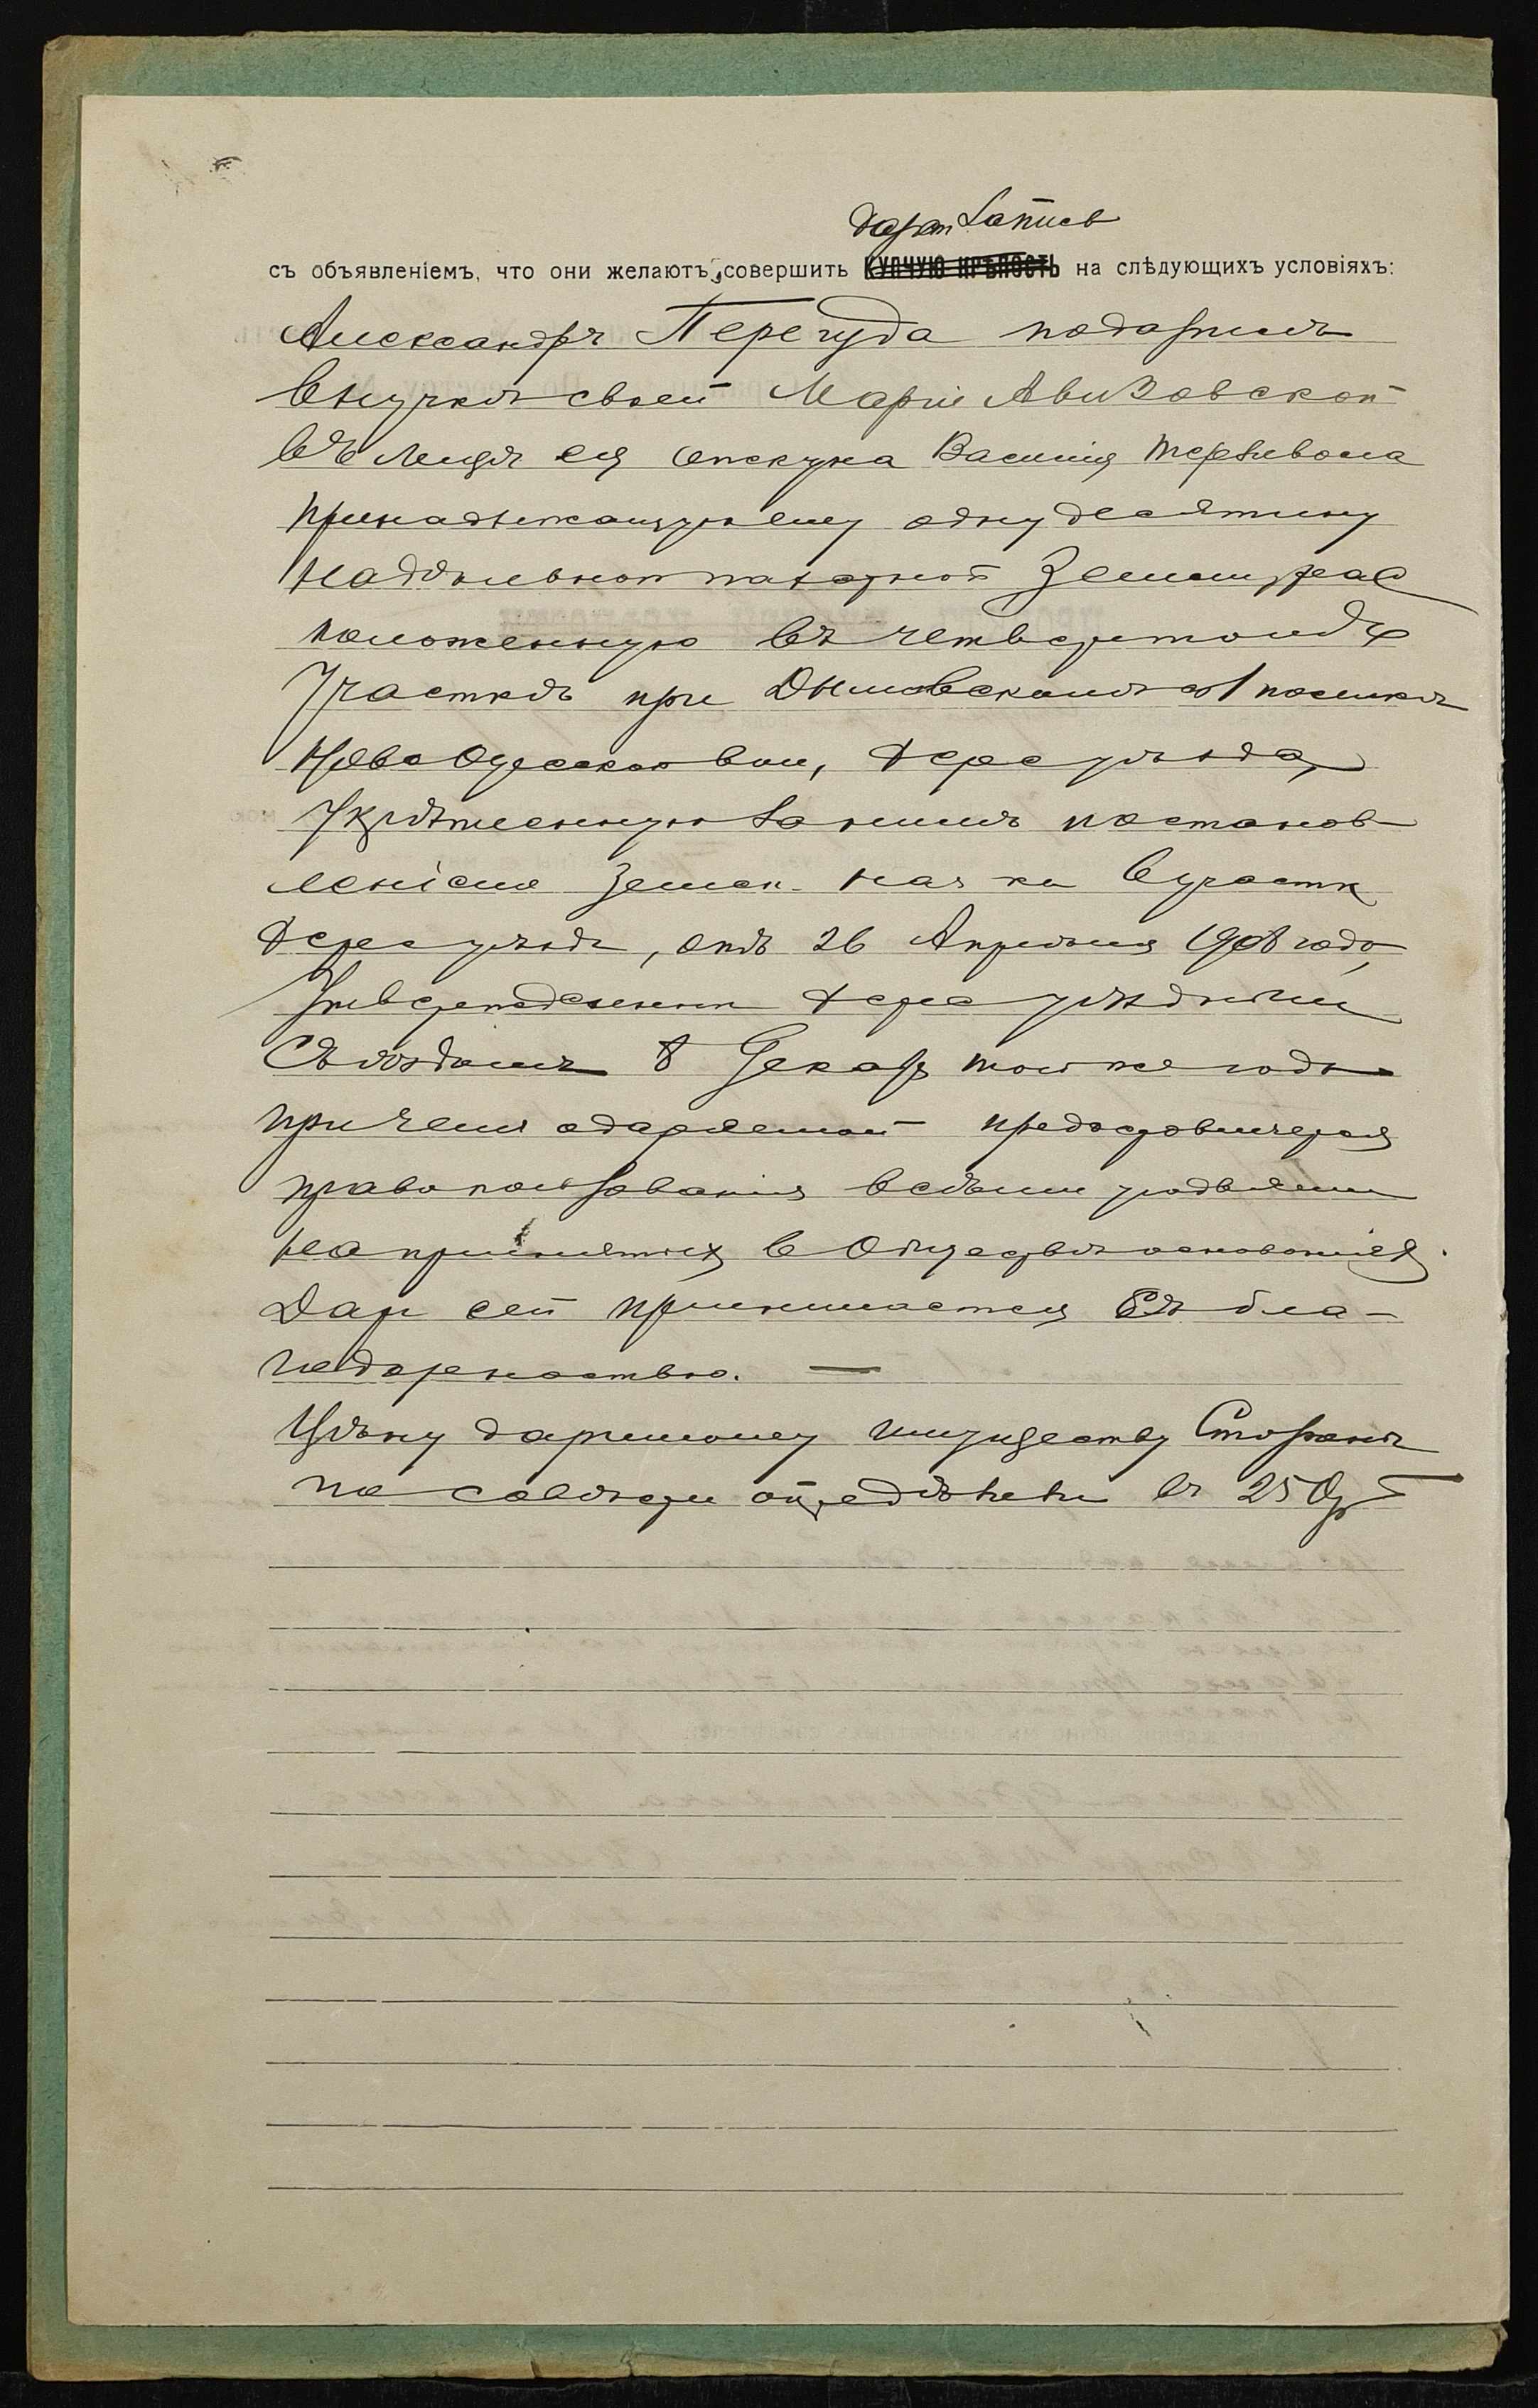 дарст запись
съ объявленіемъ, что они желаютъ совершить КУПЧУЮ КРѢПОСТЬ на слѣдующихъ условіяхъ:
Александръ Перегуда подарилъ
Внучкѣ своей Маріи Авизовской
въ лицѣ ея опекуна Василія
принадлежащую ему одну десятину
надѣльной пахатной земли, рас
положенную въ четвертомъ
Участкѣ при поселкѣ
Ново Одесской вол, Херс уѣзда,
Укрѣпленную за нимъ постанов
леніемъ Земск. нач ка 6 участк
Херс уѣзда, отъ 26 Апрѣля 1908 года,
Утвержденнымъ Херс уѣзднымъ
Съѣздомъ 8 Декабр того же года
при чемъ одаряемой предоставляется
право пользованія всѣми угодьями
на принятыхъ в Обществѣ основаніяхъ.
Даръ сей принимается Съ бла-
годарностью. —
Цѣну даримому имуществу Стороны
по совѣсти опредѣлили въ 250 р